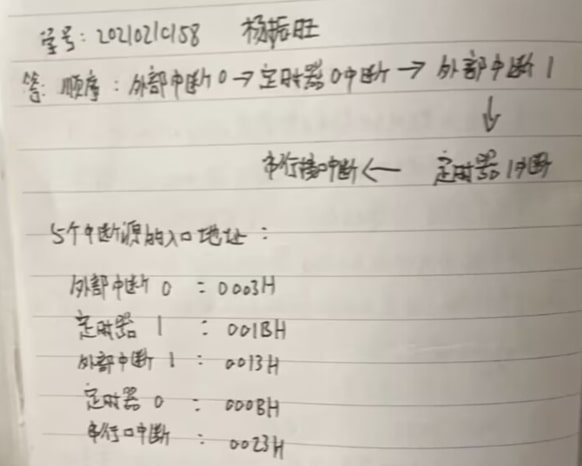 学号：2021021058 杨振旺
答：顺序：外部中断0→定时器0中断→外部中断1
↓
串行接口中断← 定时器1中断
5个中断源的入口地址：
外部中断0：0003H
定时器1：001BH
外部中断1：0013H
定时器0：000BH
串行口中断：0023H